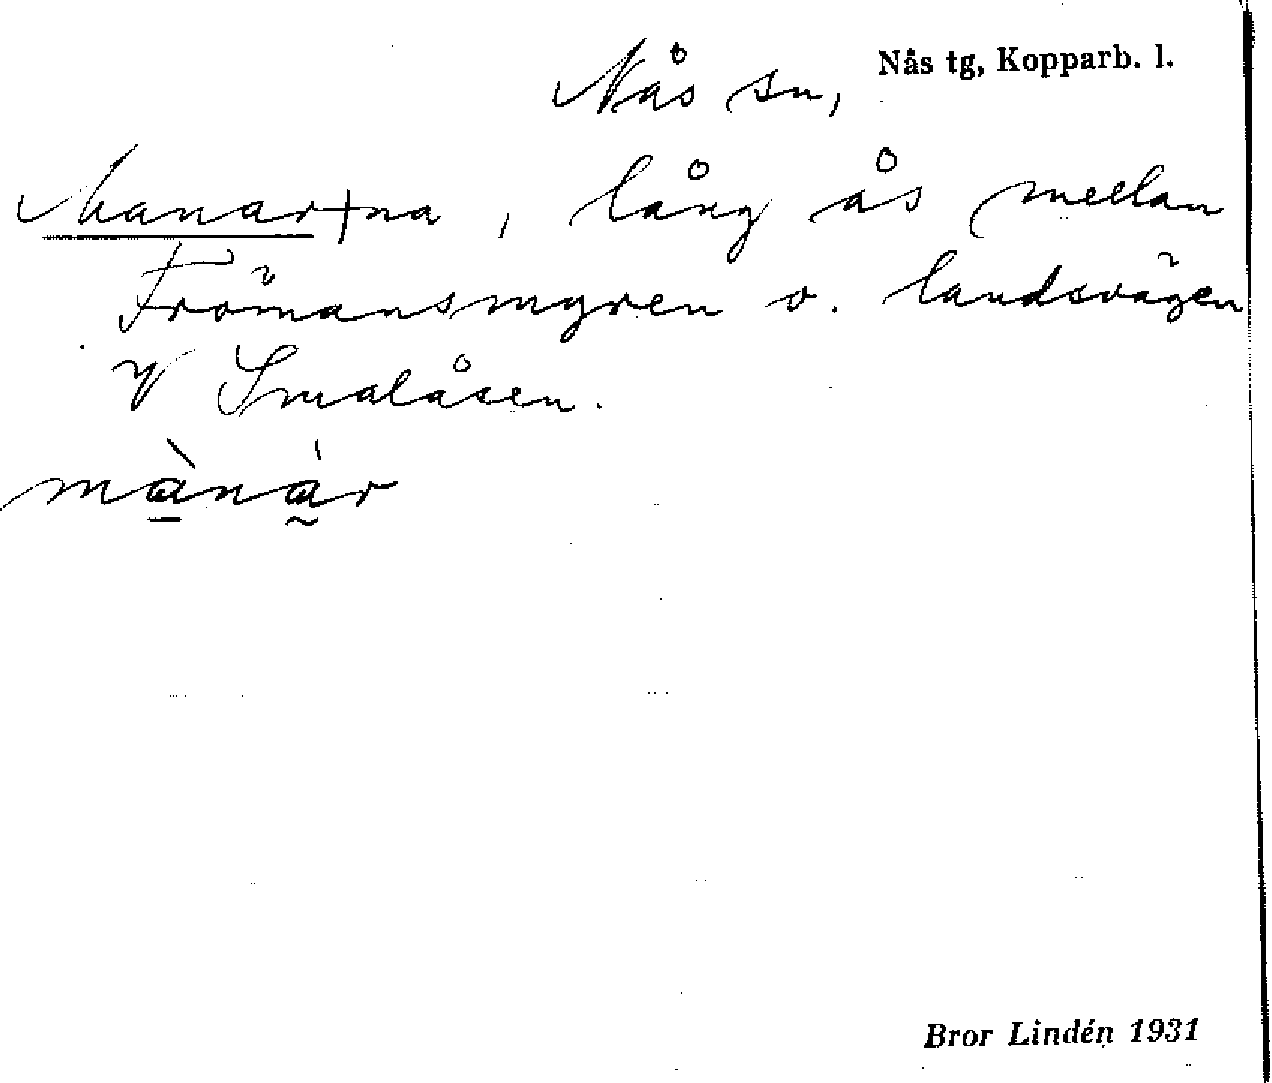 Nås tg, Kopparb. l.
Nås sn,
Manar+na, lång ås mellan
Frömansmyren o. landsvägen
V Smalåsen.
mànár
Bror Lindén 1931